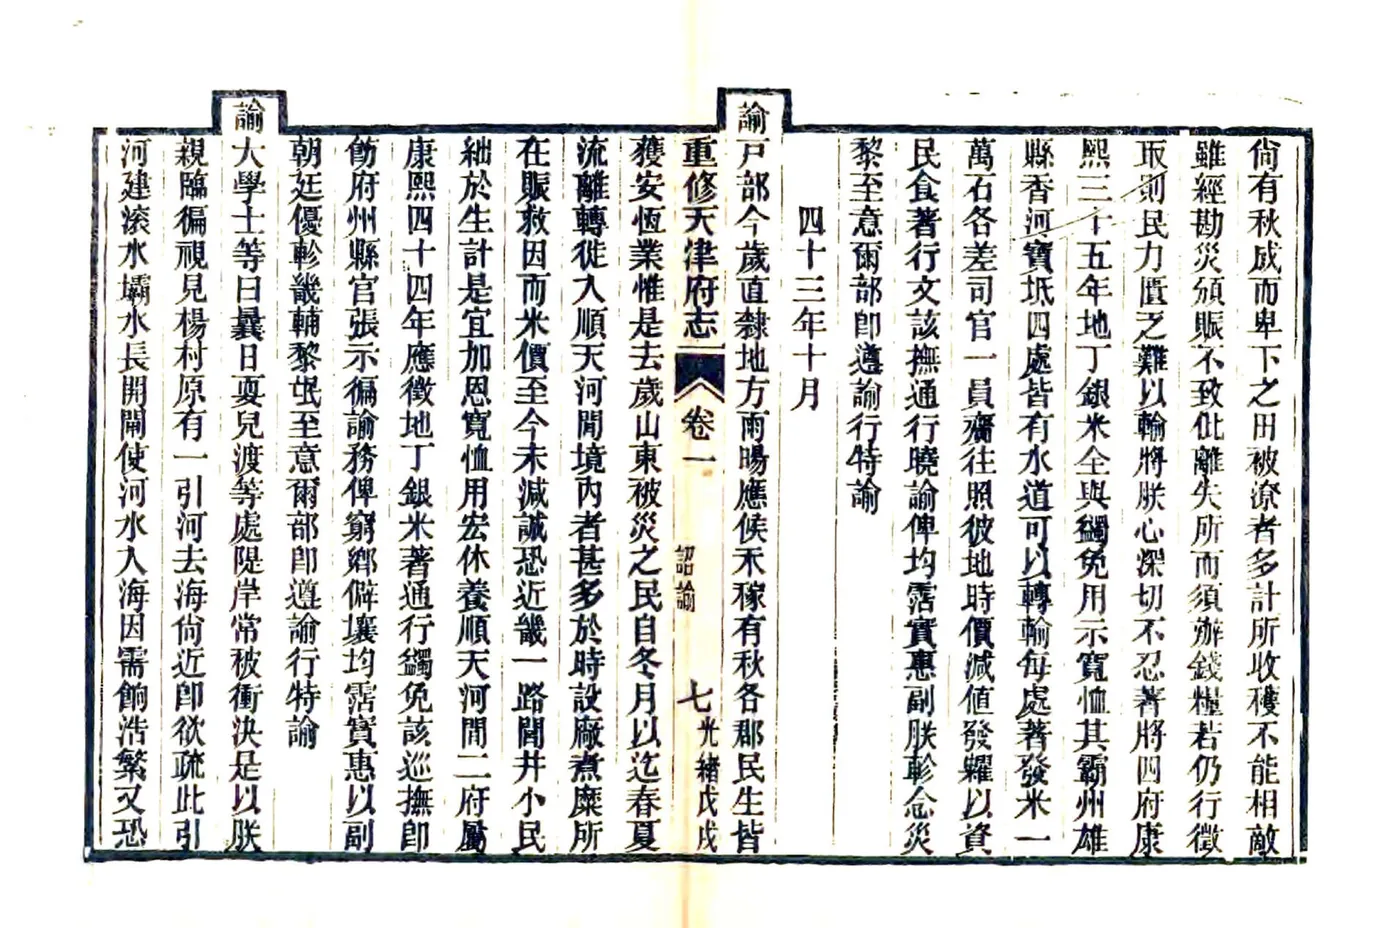 尙有秋成而卑下之田被潦者多計所收穫不能相敵
雖經勘災頒賑不致仳離失所而須辦錢糧若仍行徵
取則民力匱乏難以輸將朕心深切不忍著將四府康
熙三十五年地丁銀米全與蠲免用示寬恤其霸州雄
縣香河寶坻四處皆有水道可以轉輸每處著發米一
萬石各差司官一員齎往照彼地時價減値發糶以資
民食著行文該撫通行曉諭俾均霑實惠副朕軫念災
黎至意爾部卽遵諭行特諭
四十三年十月
諭戸部今歲直隸地方雨暘應候禾稼有秋各郡民生皆
重修天津府志 卷一 詔諭 七 光緒戊戌
獲安恆業惟是去歲山東被災之民自冬月以迄春夏
流離轉徙入順天河閒境內者甚多於時設廠煮糜所
在賑救因而米價至今未減誠恐近畿一路閭井小民
絀於生計是宜加恩寬恤用宏休養順天河閒二府屬
康熙四十四年應徵地丁銀米著通行蠲免該巡撫卽
飭府州縣官張示徧諭務俾窮鄉僻壤均霑實惠以副
朝廷優軫畿輔黎氓至意爾部卽遵諭行特諭
諭大學士等曰曩日耍兒渡等處隄岸常被衝決是以朕
親臨徧視見楊村原有一引河去海尙近卽欲疏此引
河建滚水壩水長開閘使河水入海因需餉浩繁又恐